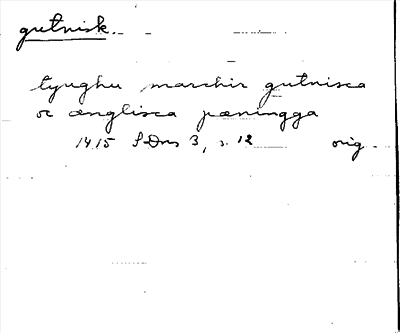 gutnisk.
tyughu marchir gutnisca
oc ænglisca pæningga
1415 SDns 3, s. 12 orig.